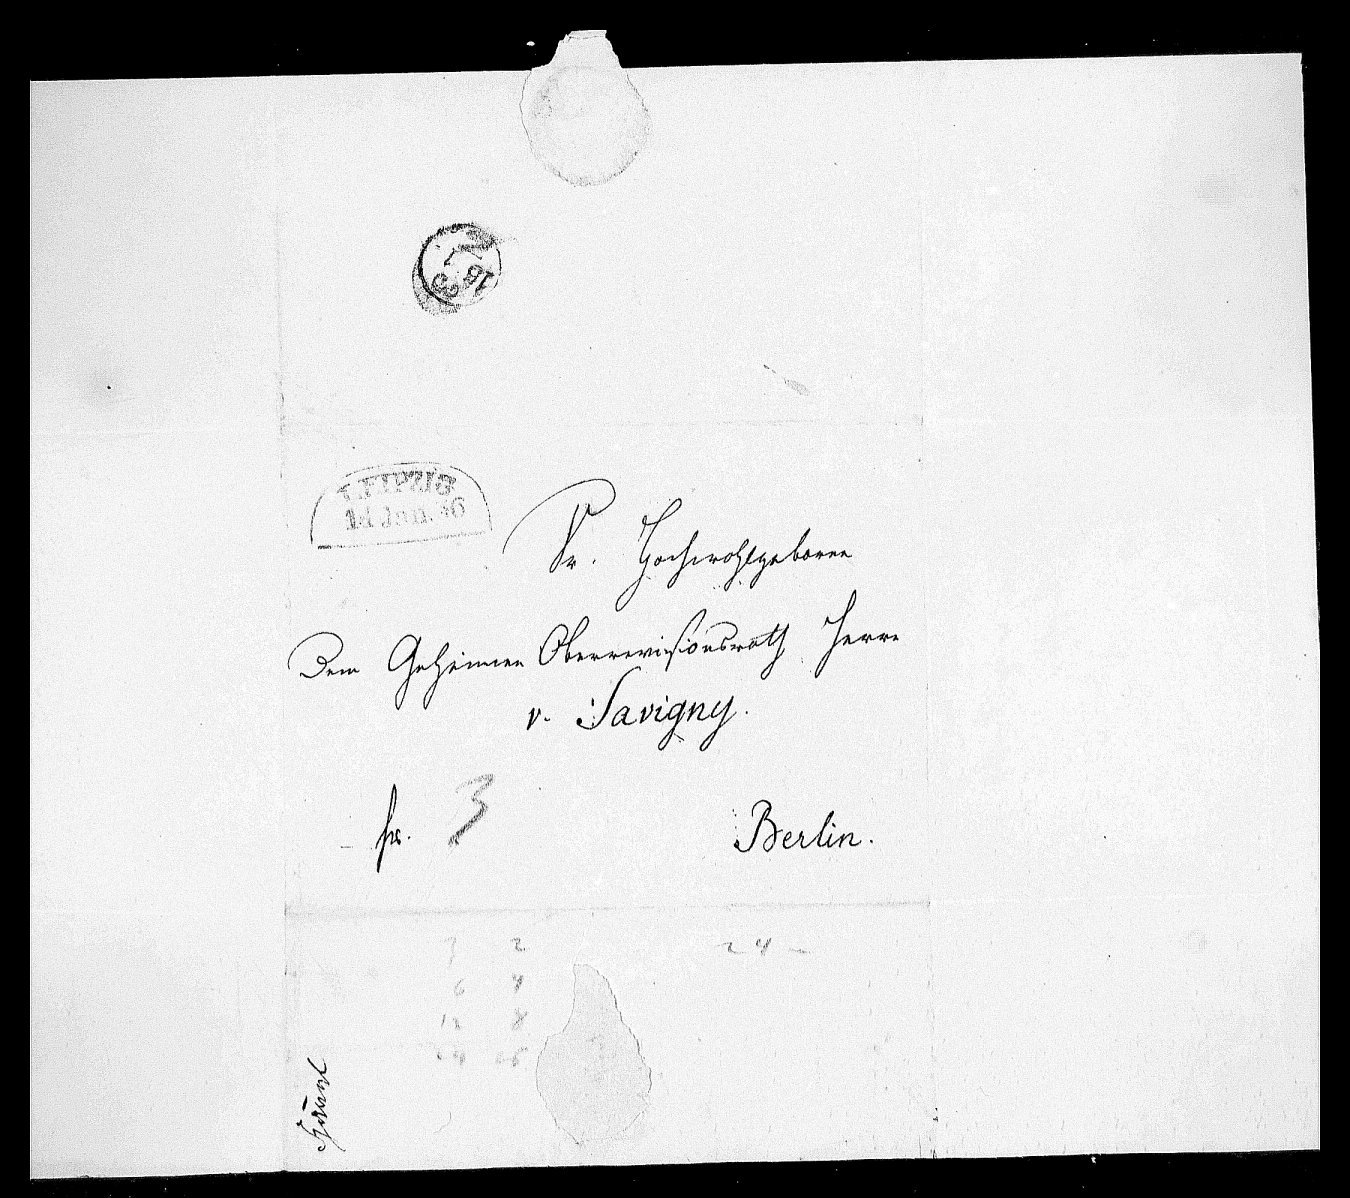 LEIPZIG
14 Jan. 36
Sr. Hochwohlgeboren
Dem Geheimen Oberrevisionsrath Herrn
v. Savigny.
fr. 3
Berlin.
3 2 24 –
6 4
12 8
24
Hänel